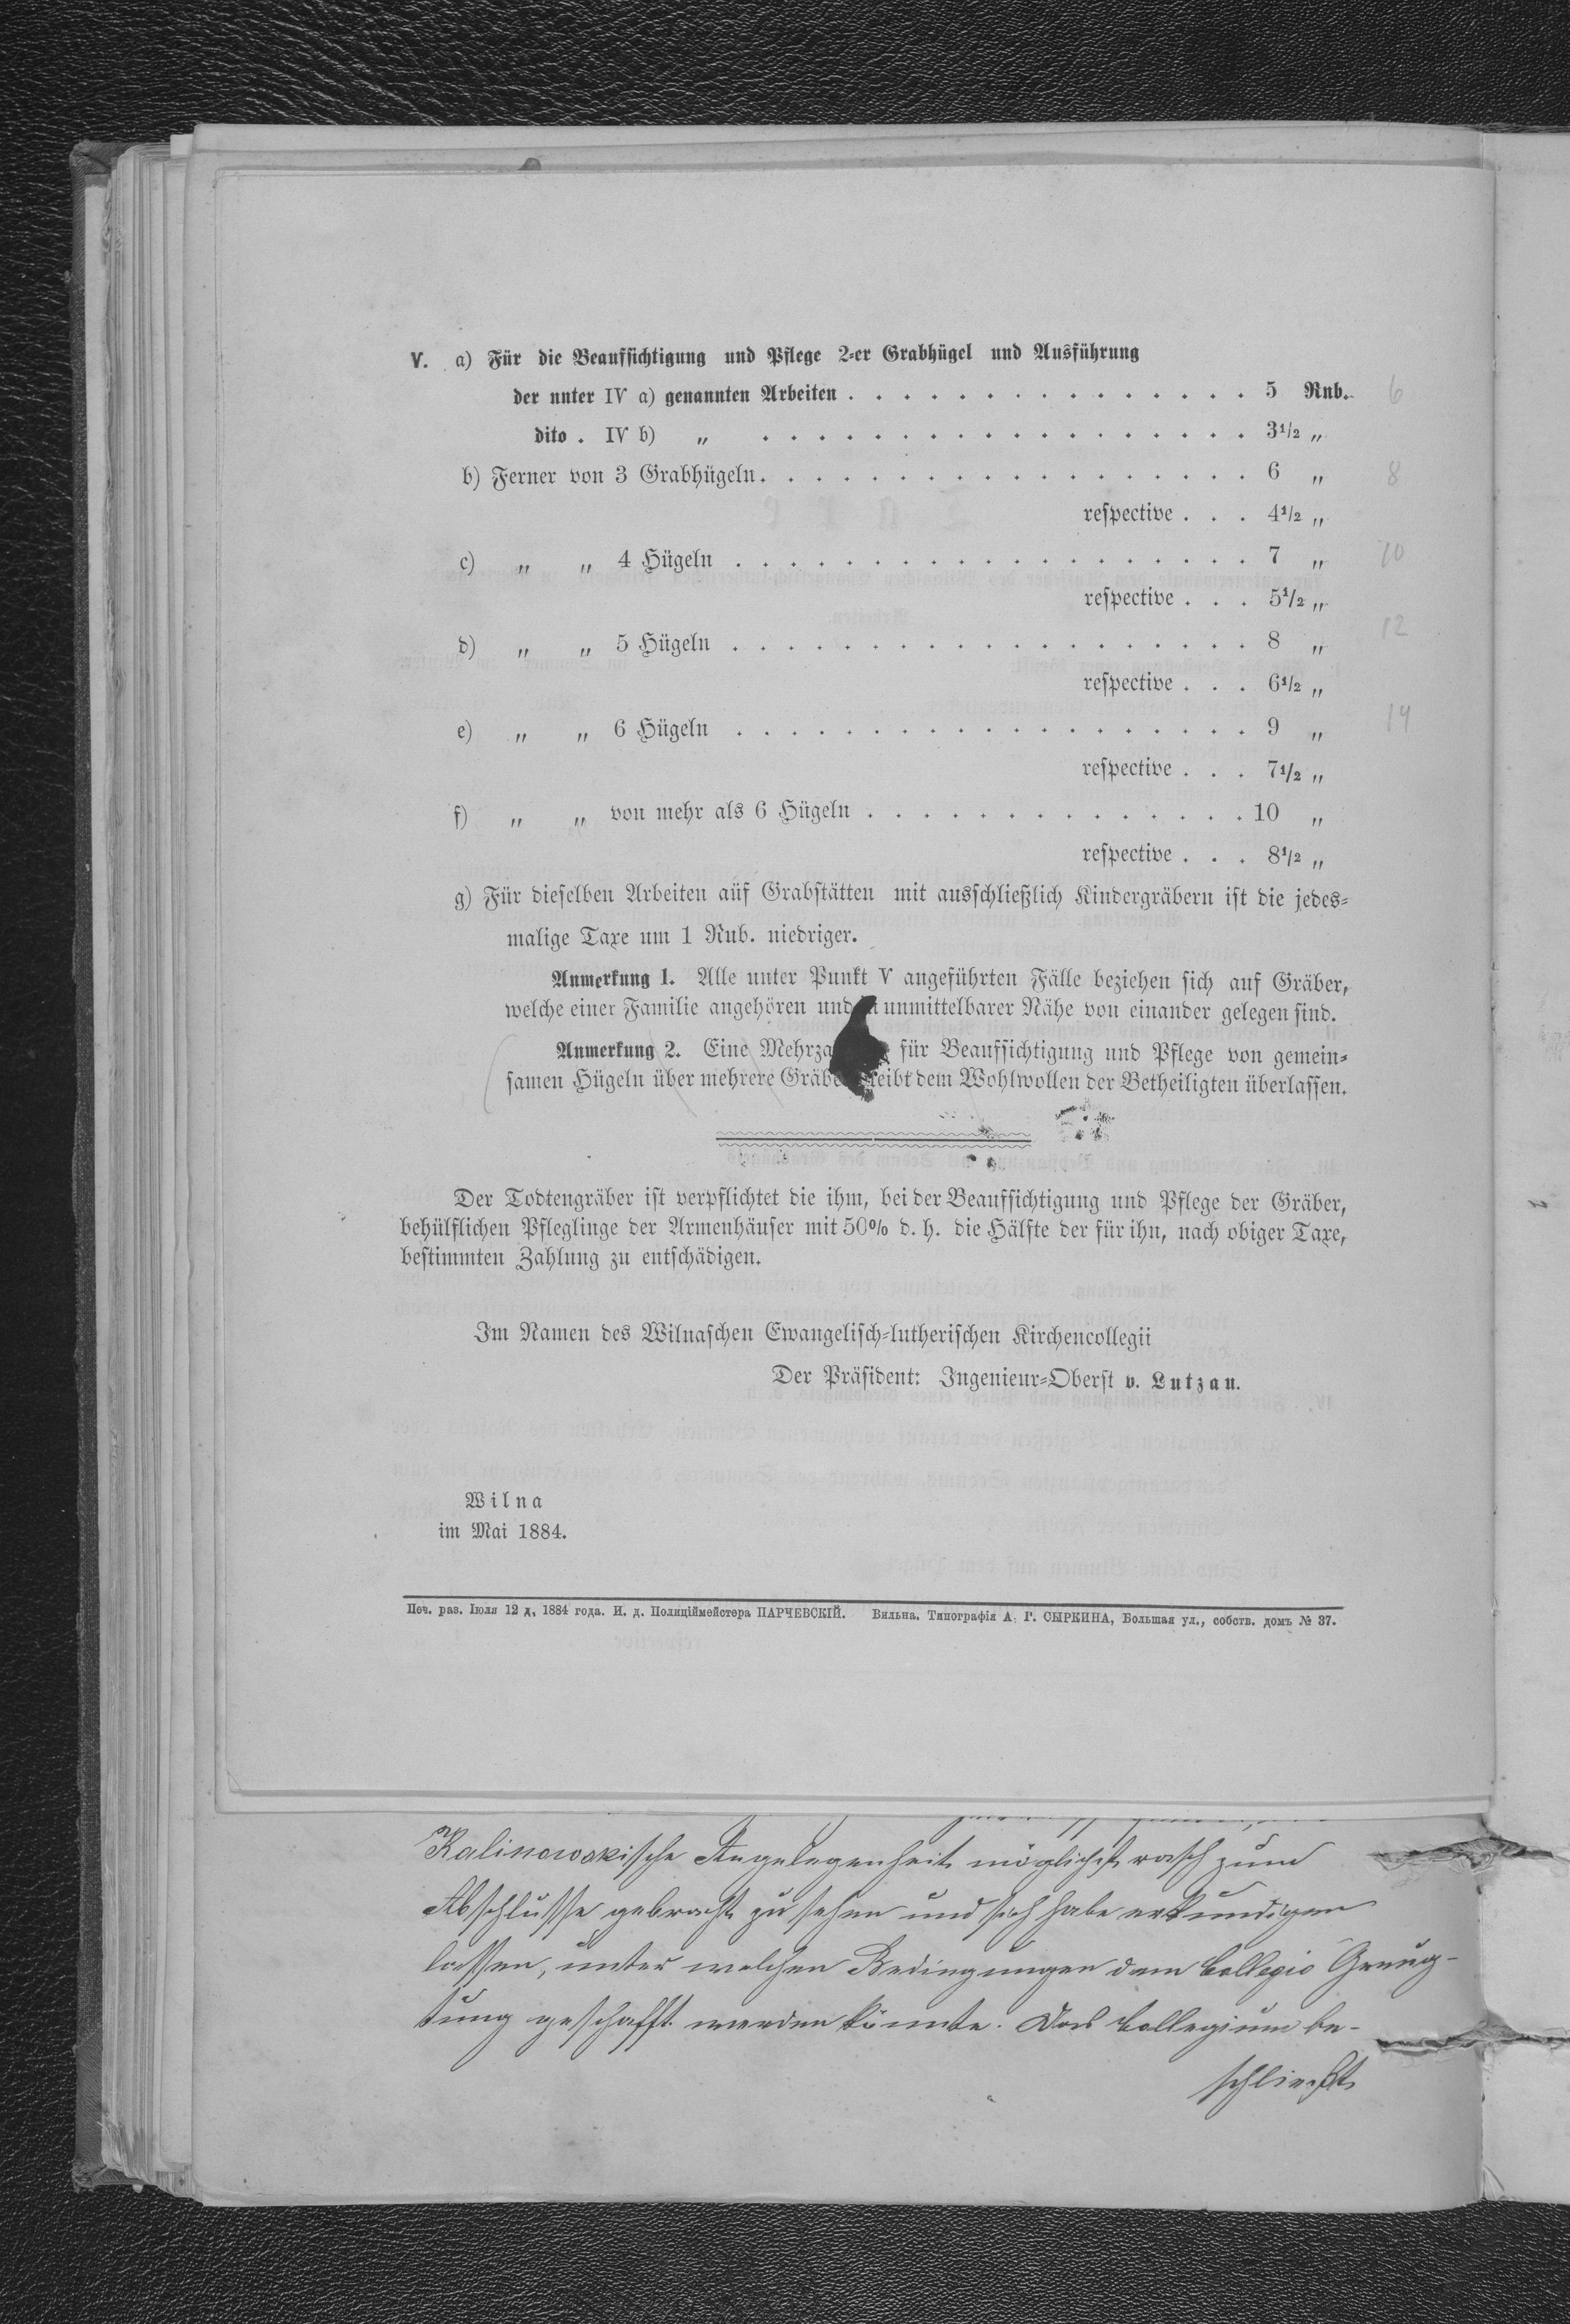 V. a) Für die Beaufsichtigung und Pflege 2-er Grabhügel und Ausführung
der unter IV a) genannten Arbeiten . . . . . . . . . . . . . . . 5 Rub. 6
dito . IV b) „ . . . . . . . . . . . . . . . . . . 3½ „
b) Ferner von 3 Grabhügeln. . . . . . . . . . . . . . . . . . 6 „ 8
respective . . . 4½ „
c) „ „ 4 Hügeln . . . . . . . . . . . . . . . . . . . 7 „ 10
respective . . . 5½ „
d) „ „ 5 Hügeln . . . . . . . . . . . . . . . . . . . 8 „ 12
respective . . . 6½ „
e) „ „ 6 Hügeln . . . . . . . . . . . . . . . . . . . 9 „ 14
respective . . . 7½ „
f) „ „ von mehr als 6 Hügeln . . . . . . . . . . . . . . 10 „
respective . . . 8½ „
g) Für dieselben Arbeiten aüf Grabstätten mit ausschließlich Kindergräbern ist die jedes-
malige Taxe um 1 Rub. niedriger.
Anmerkung 1. Alle unter Punkt V angeführten Fälle beziehen sich auf Gräber,
welche einer Familie angehören und unmittelbarer Nähe von einander gelegen sind.
Anmerkung 2. Eine für Beaufsichtigung und Pflege von gemein-
samen Hügeln über mehrere dem Wohlwollen der Betheiligten überlassen.
Der Todtengräber ist verpflichtet die ihm, bei der Beaufsichtigung und Pflege der Gräber,
behülflichen Pfleglinge der Armenhäuser mit 50% d. h. die Hälfte der für ihn, nach obiger Taxe,
bestimmten Zahlung zu entschädigen.
Im Namen des Wilnaschen Ewangelisch-lutherischen Kirchencollegii
Der Präsident: Ingenieur-Oberst v. Lutzau.
Wilna
im Mai 1884.
Печ. раз. Іюля 12 д, 1884 года. И. д. Полиціймейстера ПАРЧЕВСКІЙ. Вильна. Типографія А. Г. СЫРКИНА, Большая ул., собств. домъ № 37.
Kalinowskische Angelegenheit möglichst rasch zum
Abschlusse gebracht zu sehen und sich habe erkundigen
lassen, unter welchen Bedingungen dem Collegio Genug-
tung geschafft werden könnte. Das Collegium be-
schließt